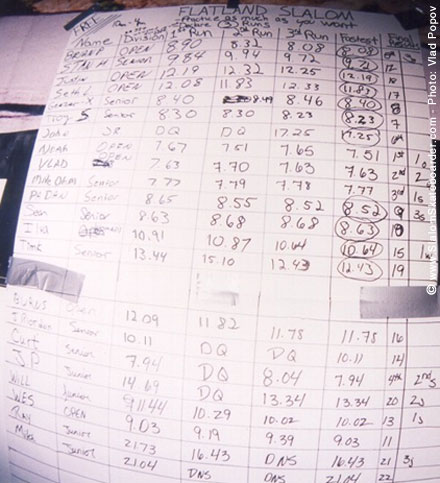 FREE FLATLAND SLALOM
Practice as much as you want
before
Name Division 1st Run 2nd Run 3rd Run Fastest
OPEN 8.90 8.32 8.08 8.08
Senior 9.84 9.94 9.72 9.72 3s
Justin OPEN 12.19 12.32 12.25 12.19
Seth L OPEN 12.08 11.83 12.33 11.83 17
X Senior 8.40 8.49 8.46 8.40 8
Troy S Senior 8.30 8.30 8.23 8.23 7
John JR DQ DQ 17.25 17.25
Noah OPEN 7.67 7.51 7.65 7.51 1st
VLAD 7.63 7.70 7.63 7.63 2nd 2
Mike Ohm Senior 7.77 7.79 7.78 7.77 3rd 1s
Senior 8.65 8.55 8.52 8.52 9 3s
Sean Senior 8.63 8.68 8.68 8.63 10
10.91 10.87 10.64 10.64 15
13.44 15.10 12.43 12.43 19
Open 12.09 11.82 11.78 11.78 16
J. Riordan Senior 10.11 DQ DQ 10.11 14
Curt Senior 7.94 DQ 8.04 7.94 4th 2nd s
JP Junior 14.69 DQ 13.34 13.34 20 2J
WILL Junior 10.29 10.02 10.02 13 1J
WES OPEN 9.03 9.19 9.39 9.03 11
Ray Junior 21.73 16.43 DNS 16.43 21 3J
Mike Junior 21.04 DNS DNS 21.04 22
www.SlalomSkateboarder.com - Photo: Vlad Popov